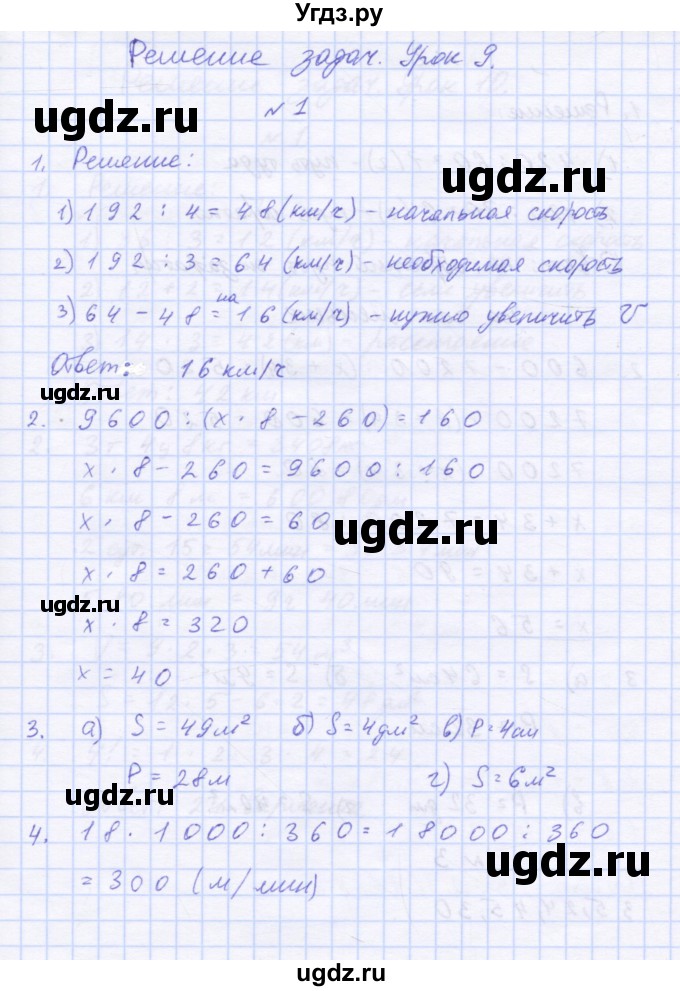 Угдз.ру
Решение задач. Урок 9.
№1
1. Решение:
1) 192 : 4 = 48 (км/ч) - начальная скорость
2) 192 : 3 = 64 (км/ч) - необходимая скорость
на
3) 64 - 48 = 16 (км/ч) - нужно увеличить V
Ответ: 16 км/ч
2. 9600 : (x · 8 - 260) = 160
x · 8 - 260 = 9600 : 160
x · 8 - 260 = 60
x · 8 = 260 + 60
x · 8 = 320
x = 40
3. а) S = 49м² б) S = 4дм² в) P = 4см
P = 28м г) S = 6м²
4. 18 · 1000 : 360 = 18000 : 360
= 300 (м/мин)
ugdz.ru
ugdz.ru
ugdz.ru
ugdz.ru
ugdz.ru
ugdz.ru
ugdz.ru
ugdz.ru
ugdz.ru